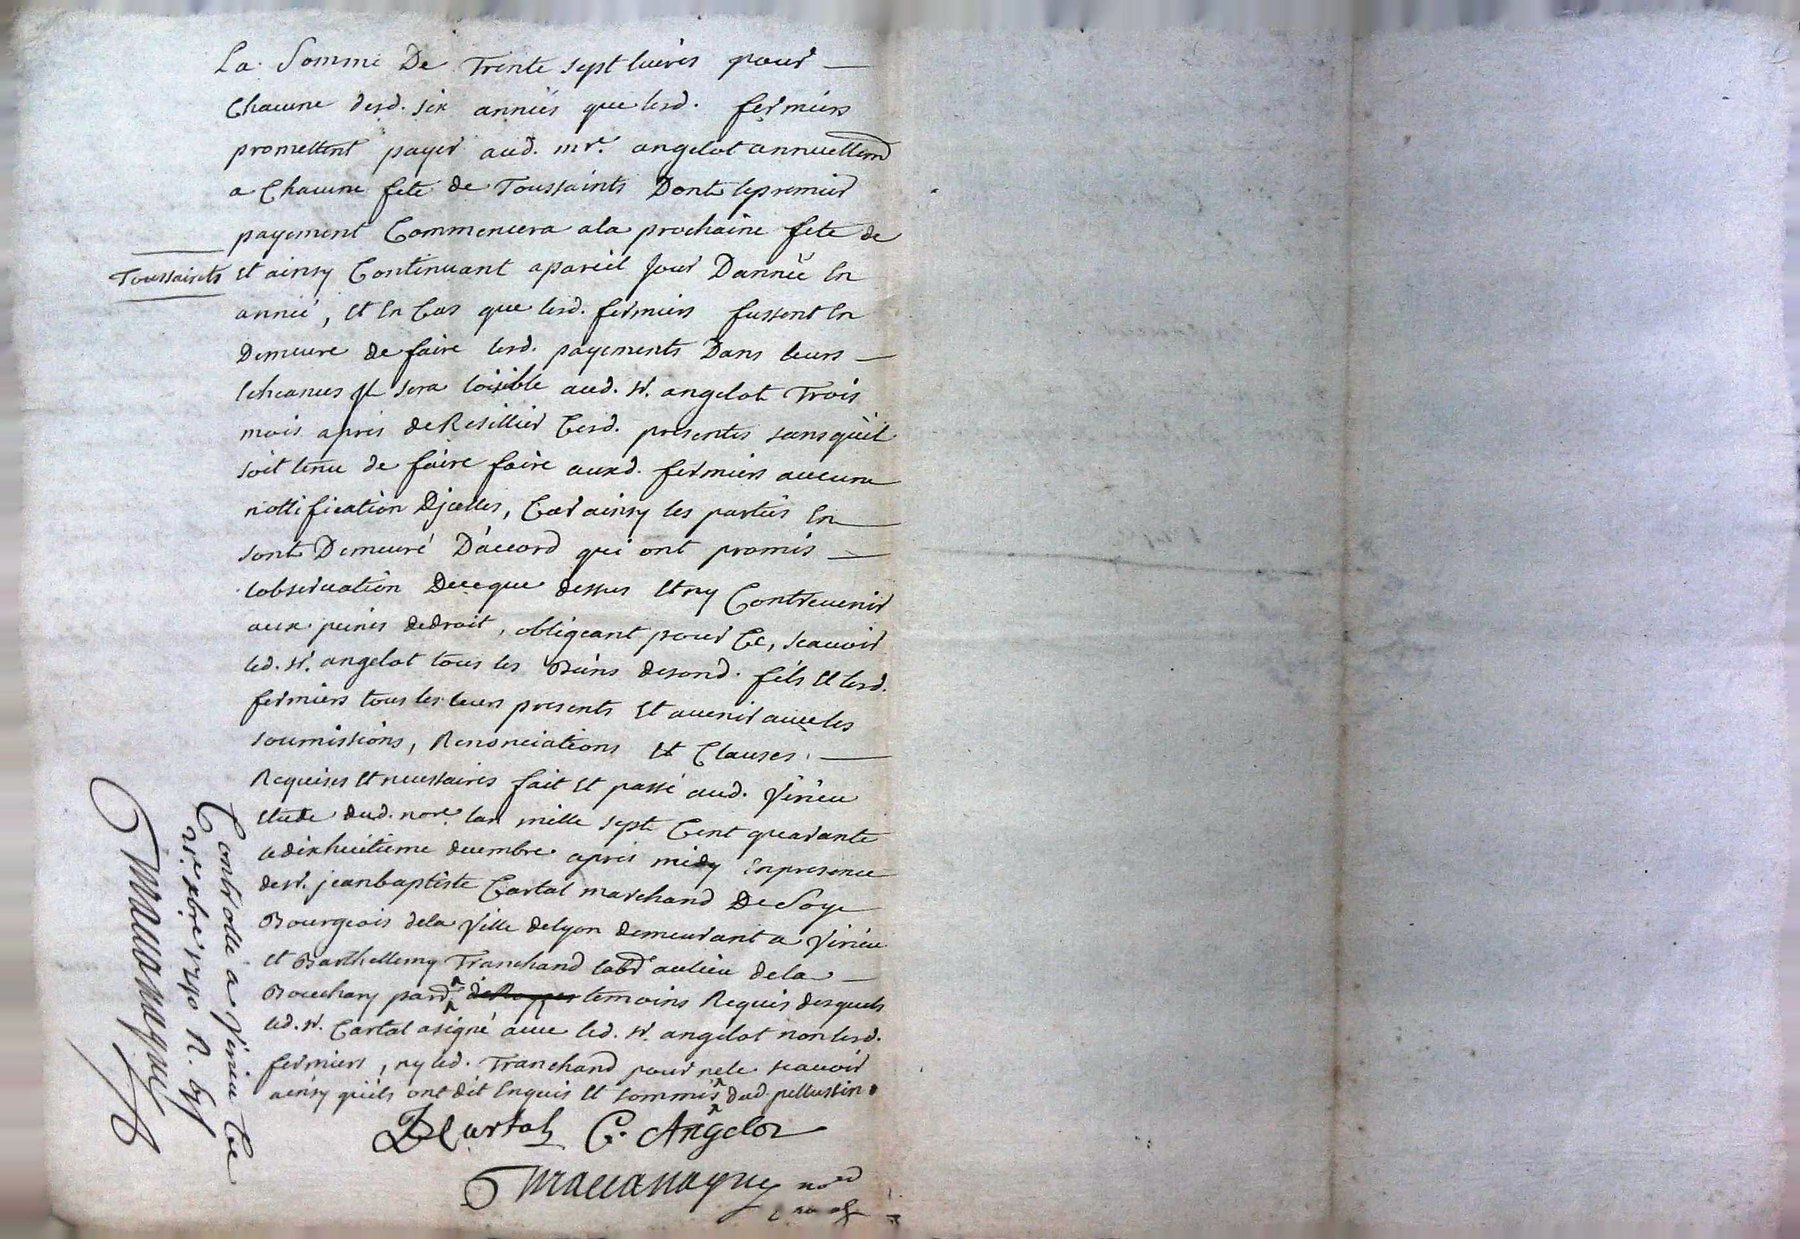 La Somme De Trente sept livres pour
Chacune desd. six années que lesd. fermiers
promettent payer aud. mr. angelot annuellemt
a Chacune fete de Toussaints Dont le premier
payement Commencera a la prochaine fete de
Toussaints et ainsy Continuant a pareil Jour D'année En
année, et En Cas que lesd. fermiers fussent En
Demeure de faire lesd. payements Dans leurs
Echeances Jl sera loisible aud. sr. angelot Trois
mois apres de Resillier Cesd. presentes sans qu'il
soit tenu de faire faire auxd. fermiers aucune
nottification D'jcelles, Car ainsy les parties En
sont Demeuré D'accord qui ont promis
l'observation De ce que dessus Et ny Contrevenir
aux peines de droit, obligeant pour Ce, scavoir
led. sr. angelot tous les Biens de sond. fils Et lesd.
fermiers tous les leurs presents Et avenir avec les
soumissions, Renonciations Et Clauses
Requises Et necessaires fait Et passé aud. Virieu
Etude dud. nore. l'an mille sept Cent quarante
le dix huitieme decembre apres midy En presence
de sr. jean baptiste Cartal marchand De Soye
Bourgeois de la Ville de lyon demeurant a Virieu
et Barthellemy Tranchand labr. au lieu de la
Bouchary temoins Requis desquels
led. sr. Cartal a signé avec led. sr. angelot non lesd.
fermiers, ny led. Tranchand pour ne le scavoir
ainsy qu'ils ont dit Enquis Et sommés dud. pellussin
Cartal C. Angelot
nore
Controllé a Virieu le
xbre 1740 R.